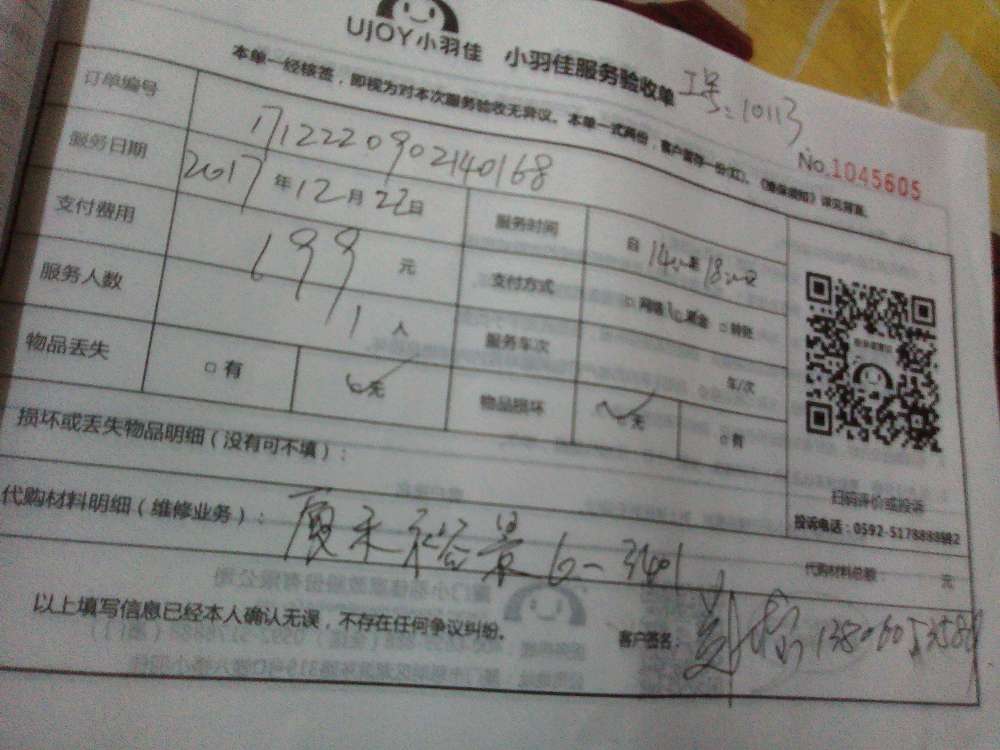 UJOY小羽佳 小羽佳服务验收单 工号:10113
本单一经核签，即视为对本次服务验收无异议。本单一式两份，客户留存一份
No.1045605
订单编号 1712220902140168
服务日期 2017年12月22日 服务时间 自14:00至18:00
支付费用 199元 支付方式 □网络 现金 □转账
服务人数 1人 服务车次 车/次
物品丢失 □有 无 物品损坏 无 □有
损坏或丢失物品明细（没有可不填）：
扫码评价或投诉
投诉电话：0592-5178888
代购材料明细（维修业务）： 6-3401
代购材料总额： 元
以上填写信息已经本人确认无误，不存在任何争议纠纷。 客户签名：